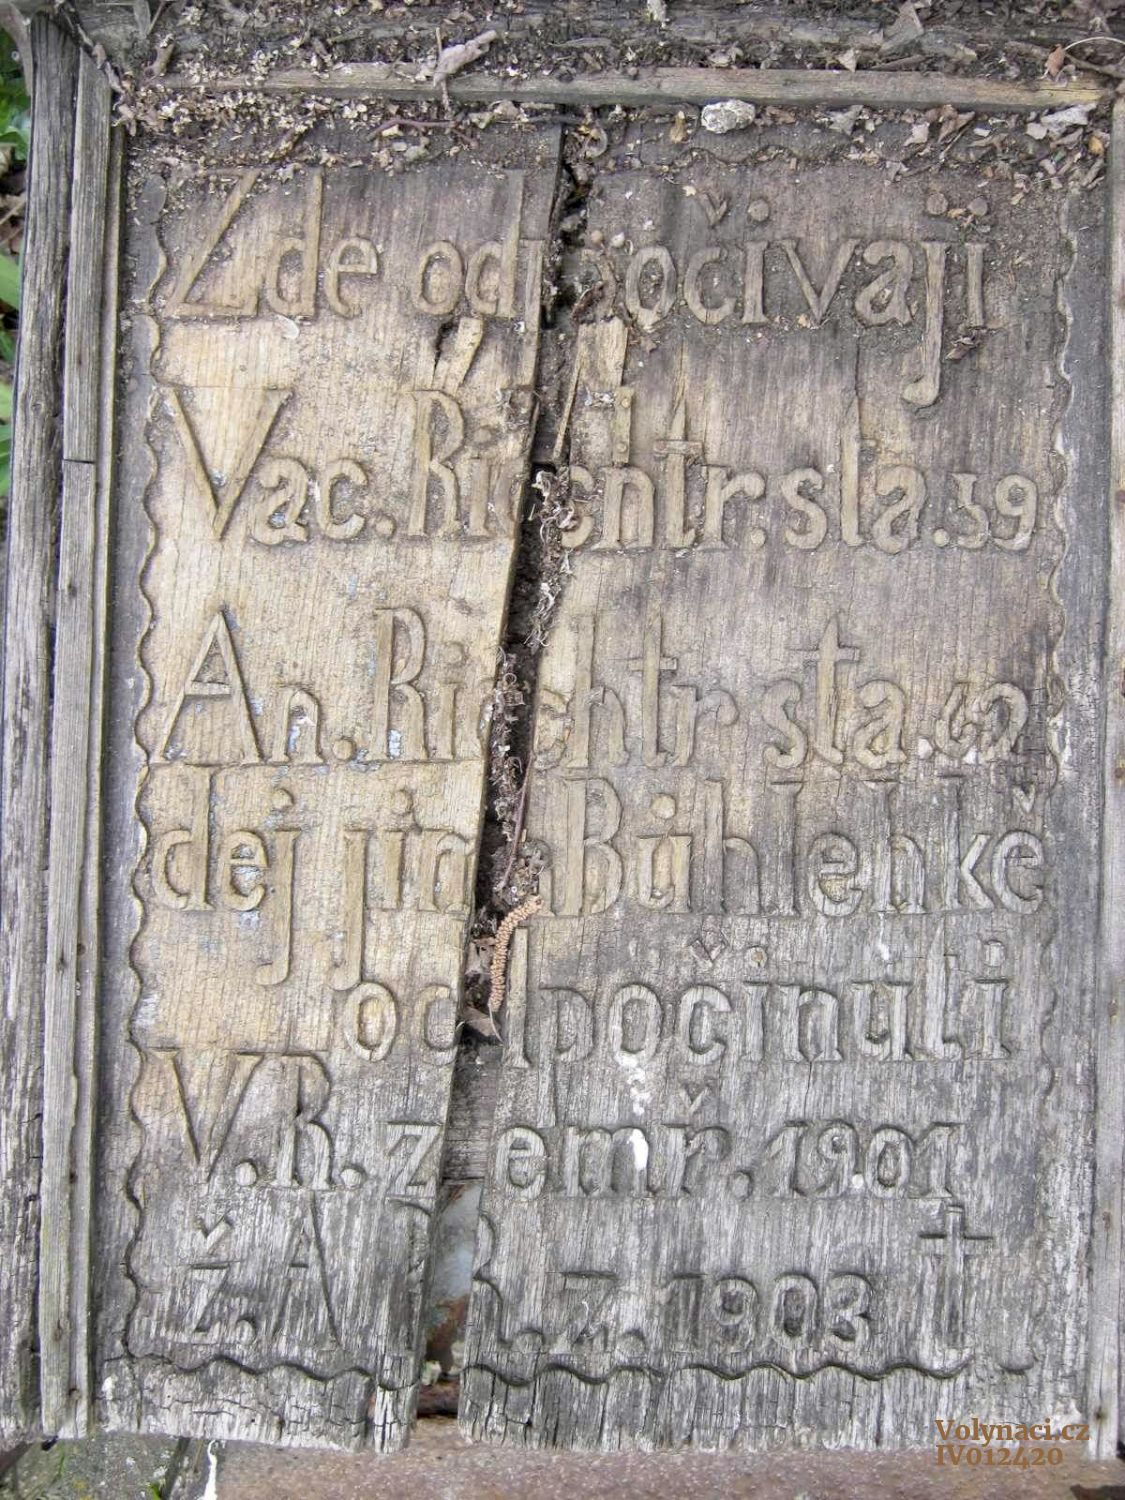 Zde odpočívají
Vac. Richtr. sta. 59
An. Richtr sta. 62
dej jim Bůh lehkě
odpočinuti
V. R. zemř. 1901
ž. A. R. z. 1903 †
Volynaci.cz
IV012420